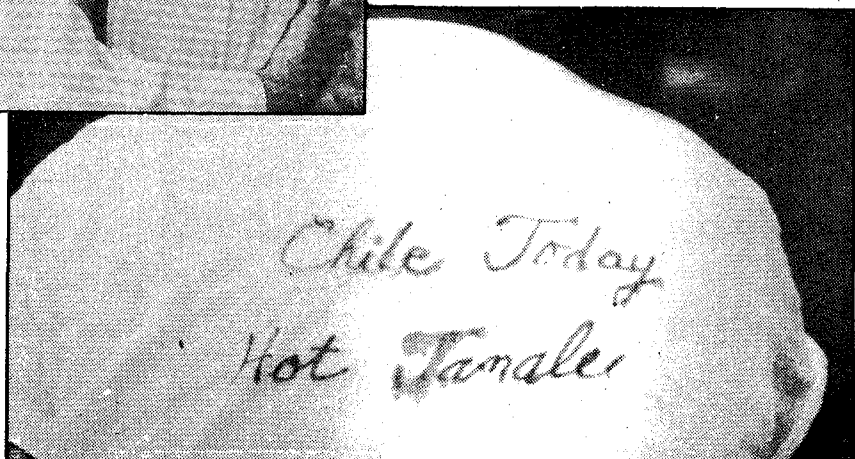 Chile Today
Hot Tamale